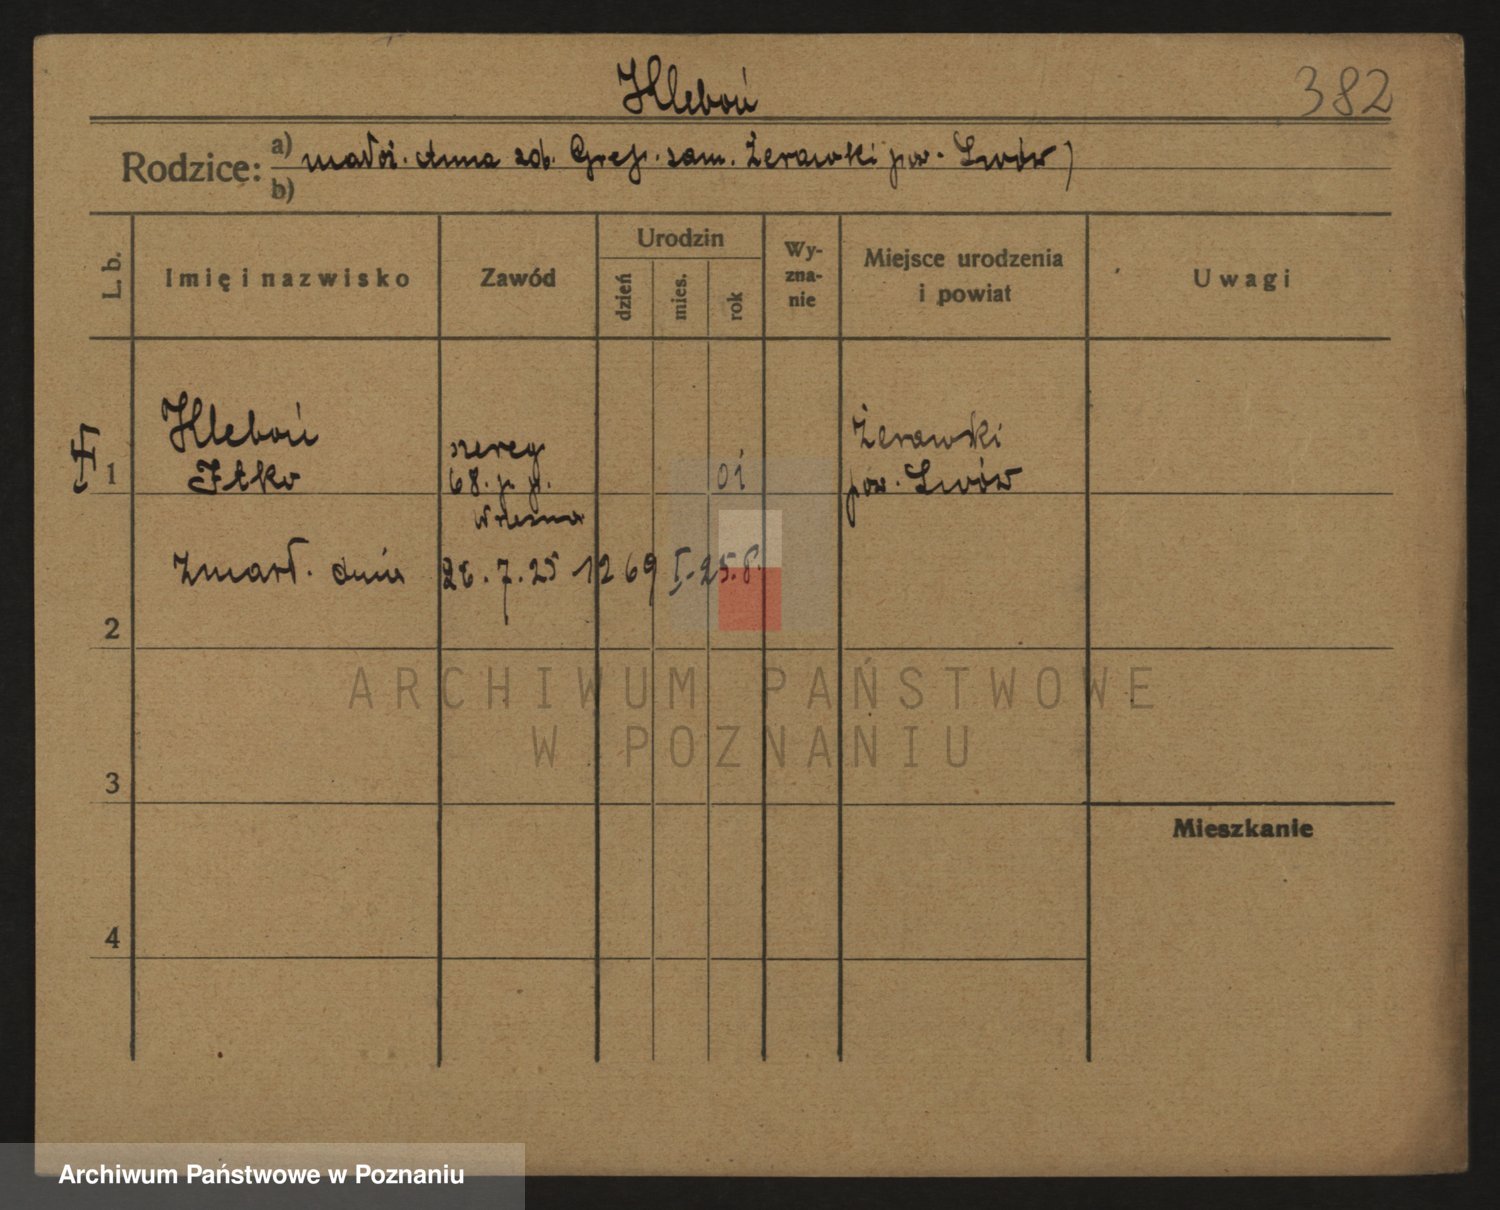 Hleboń
382
Rodzice: a) małż. Anna zob. Grzej. zam. Żerawki pow. Lwów)
b)
L. b.
Imię i nazwisko
Zawód
Urodzin
dzień
mies.
rok
Wy-
zna-
nie
Miejsce urodzenia
i powiat
Uwagi
1
Hleboń
Itko
szereg
68. p. p.
Września
01
Żerawki
pow. Lwów
zmarł. dnia .7.25 1269 I-25.8.
2
3
4
Mieszkanie
ARCHIWUM PAŃSTWOWE
W POZNANIU
Archiwum Państwowe w Poznaniu